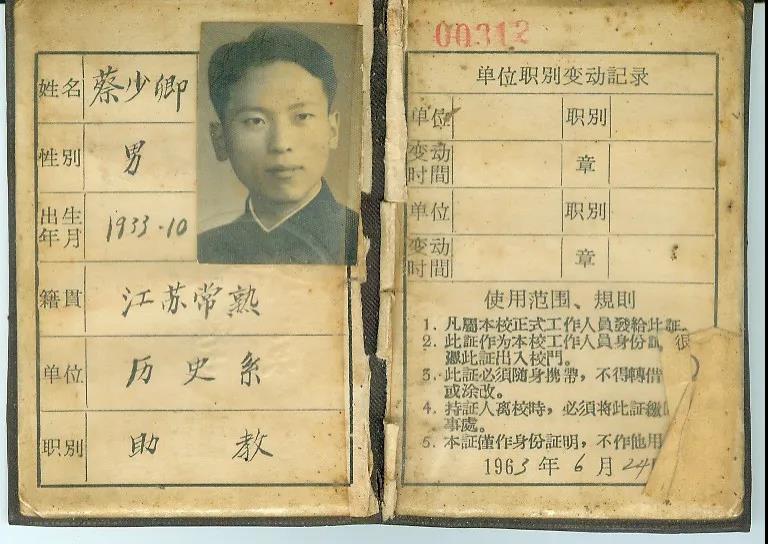 姓名 蔡少卿
性别 男
出生年月 1933·10
籍貫 江苏常熟
单位 历史系
职别 助教
00312
单位职别变动記录
单位 职别
变动时間 章
单位 职别
变动时間 章
使用范围、規則
1. 凡屬本校正式工作人員發給此証
2. 此証作为本校工作人員身份証
此証出入校門。
3. 此証必須随身携帶，不得轉借
或涂改。
4. 持証人离校时，必須将此証繳
事處。
5. 本証僅作身份証明，不作他用
1963年6月24